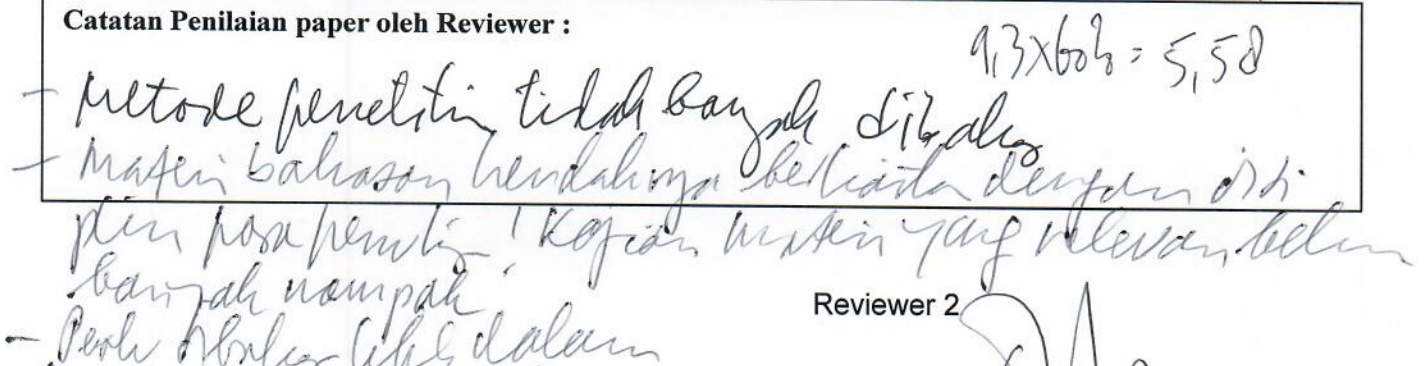 Catatan Penilaian paper oleh Reviewer :
9,3x60% = 5,58
- Metode penelitin tidak banyak dibahas
- Materi bahasan hendaknya berkaita dengan disi
plin para penulis! Kajian materi yang relevan belum
banyak nampak
Reviewer 2
- Perlu dibahas lebih dalam